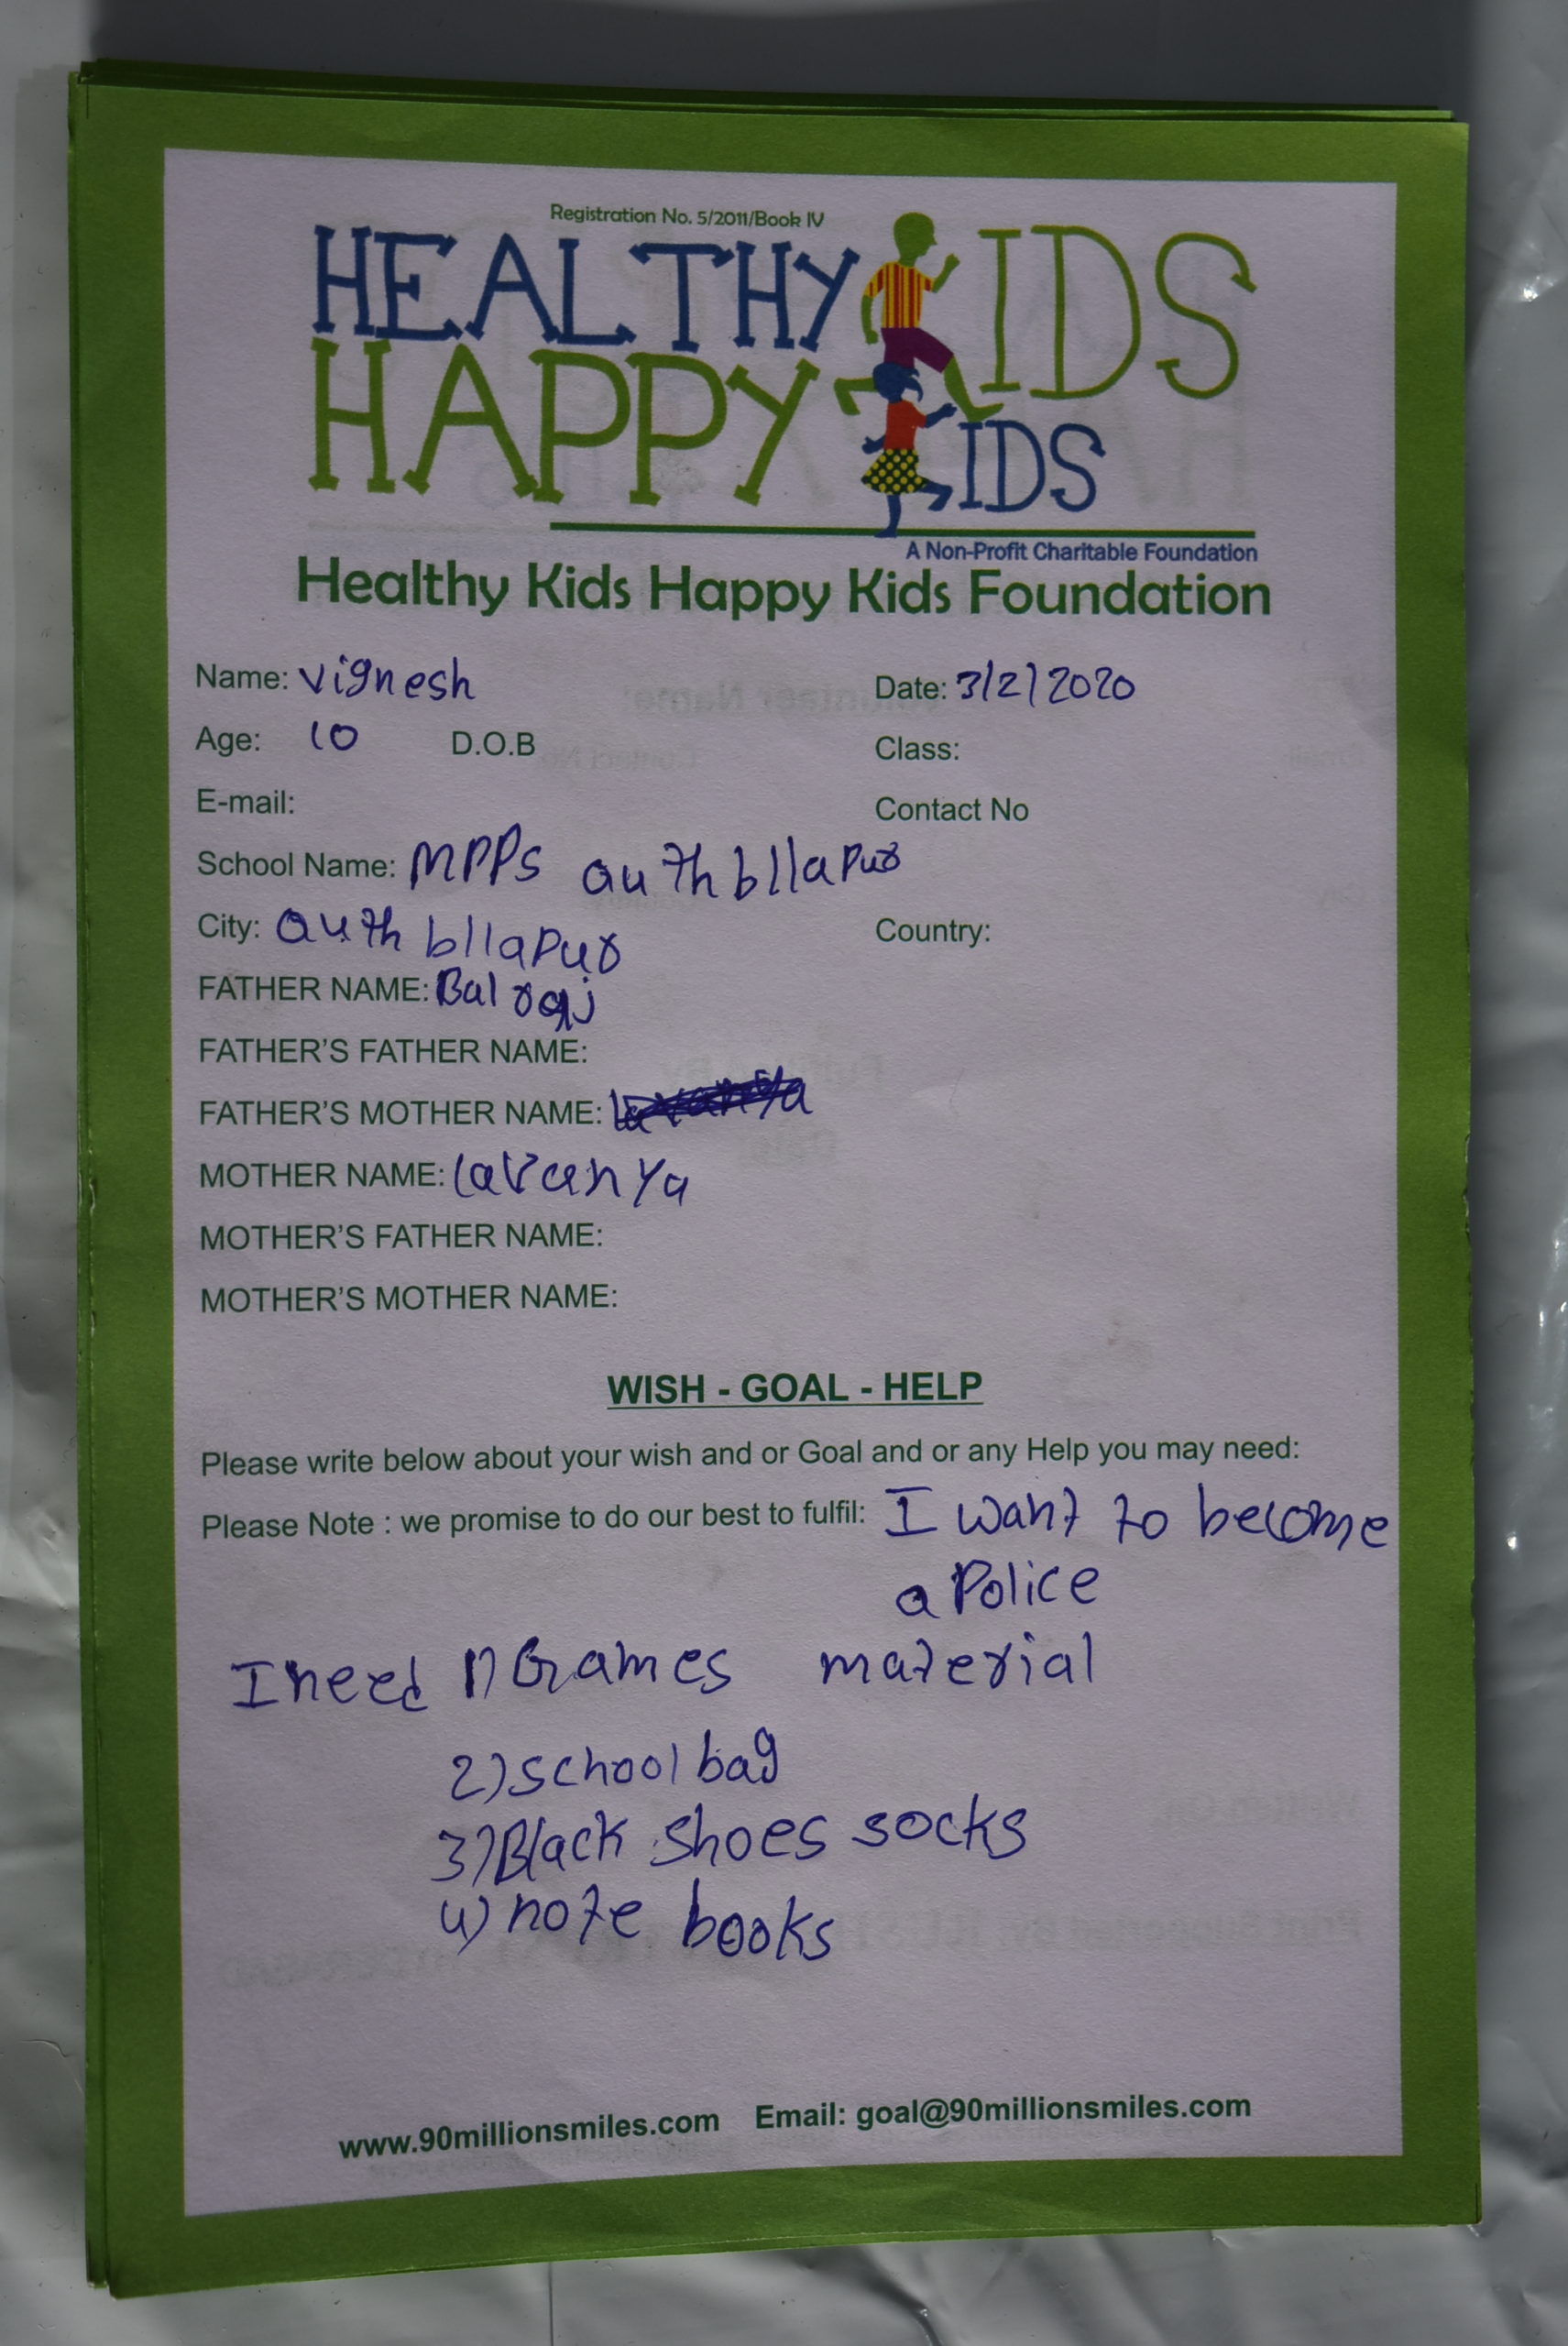 Registration No. 5/2011/Book IV
HEALTHY KIDS
HAPPY KIDS
A Non-Profit Charitable Foundation
Healthy Kids Happy Kids Foundation
Name: Vignesh Date: 3/2/2020
Age: 10 D.O.B Class:
E-mail: Contact No
School Name: MPPS authbllapur
City: authbllapur Country:
FATHER NAME: Balraj
FATHER'S FATHER NAME:
FATHER'S MOTHER NAME:
MOTHER NAME: lavanya
MOTHER'S FATHER NAME:
MOTHER'S MOTHER NAME:
WISH - GOAL - HELP
Please write below about your wish and or Goal and or any Help you may need:
Please Note : we promise to do our best to fulfil: I want to become
a Police
I need 1) Games material
2) school bag
3) Black shoes socks
4) note books
www.90millionsmiles.com Email: goal@90millionsmiles.com